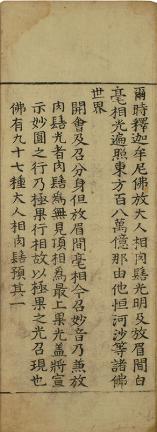 爾時釋迦牟尼佛放大人相肉髻光明及放眉間白
毫相光遍照東方百八萬億那由他恒河沙等諸佛
世界
開會及召分身但放眉間毫相今召妙音乃兼放
肉髻光者肉髻為無見頂相為最上果光盖將宣
示妙圓之行乃極果行相故以極果之光召現也
佛有九十七種大人相肉髻預其一